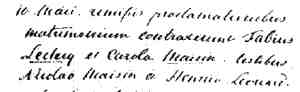 10 Maii. remissis proclamationibus
matrimonium contraxerunt Fabius
Leclerq et Carola Maisin. testibus
Nicolao Maisin & Henrico Leonard.